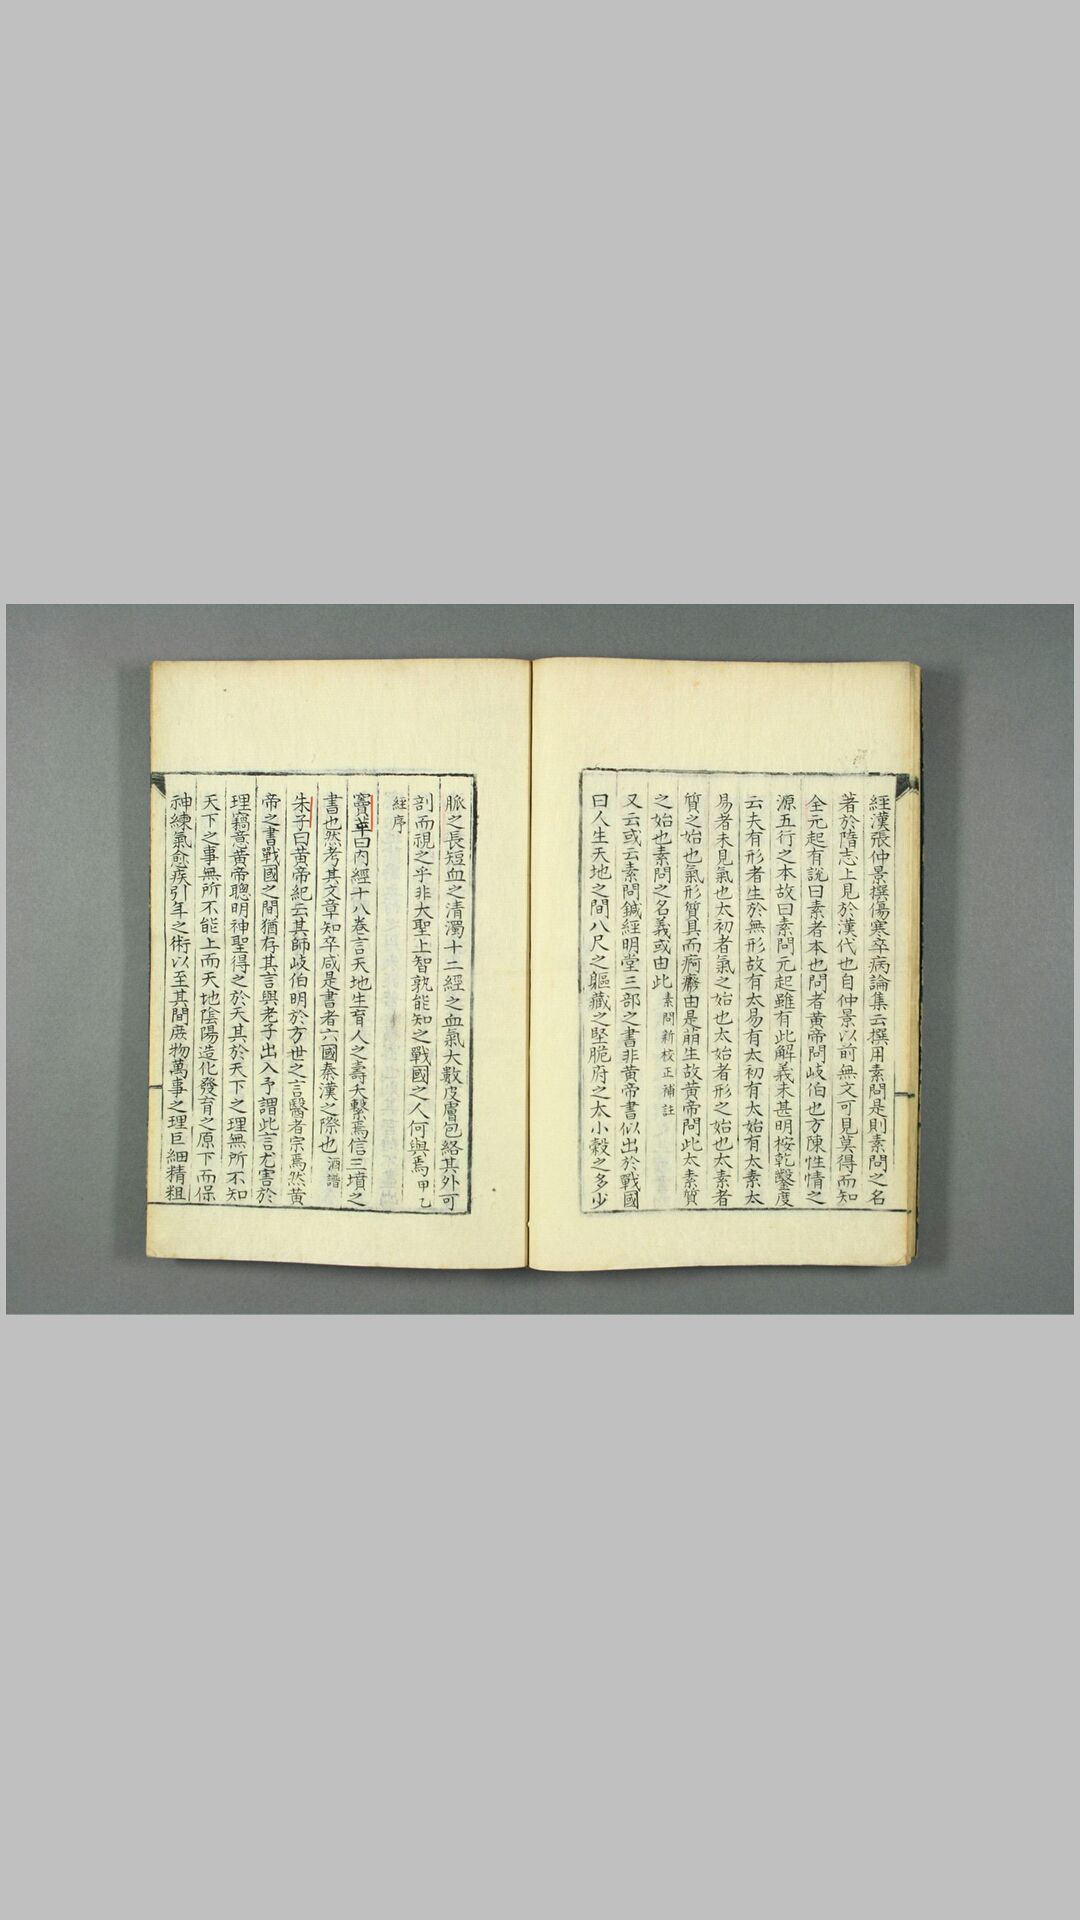 經漢張仲景撰傷寒卒病論集云撰用素問是則素問之名
著於隋志上見於漢代也自仲景以前無文可見莫得而知
全元起有說曰素者本也問者黃帝問歧伯也方陳性情之
源五行之本故曰素問元起雖有此解義未甚明桉乾鑿度
云夫有形者生於無形故有太易有太初有太始有太素太
易者未見氣也太初者氣之始也太始者形之始也太素者
質之始也氣形質具而痾瘵由是萠生故黃帝問此太素質
之始也素問之名義或由此素問新校正補註
又云或云素問鍼經明堂三部之書非黃帝書似出於戰國
曰人生天地之間八尺之軀藏之堅脆府之太小穀之多少
脈之長短血之清濁十二經之血氣大數皮膚包絡其外可
剖而視之乎非大聖上智孰能知之戰國之人何與焉甲乙
經序
竇苹曰內經十八卷言天地生育人之壽夭繫焉信三墳之
書也然考其文章知卒成是書者六國秦漢之際也酒譜
朱子曰黃帝紀云其師歧伯明於方世之言醫者宗焉然黃
帝之書戰國之間猶存其言與老子出入予謂此言尤害於
理竊意黃帝聰明神聖得之於天其於天下之理無所不知
天下之事無所不能上而天地陰陽造化發育之原下而保
神練氣愈疾引年之術以至其間庶物萬事之理巨細精粗